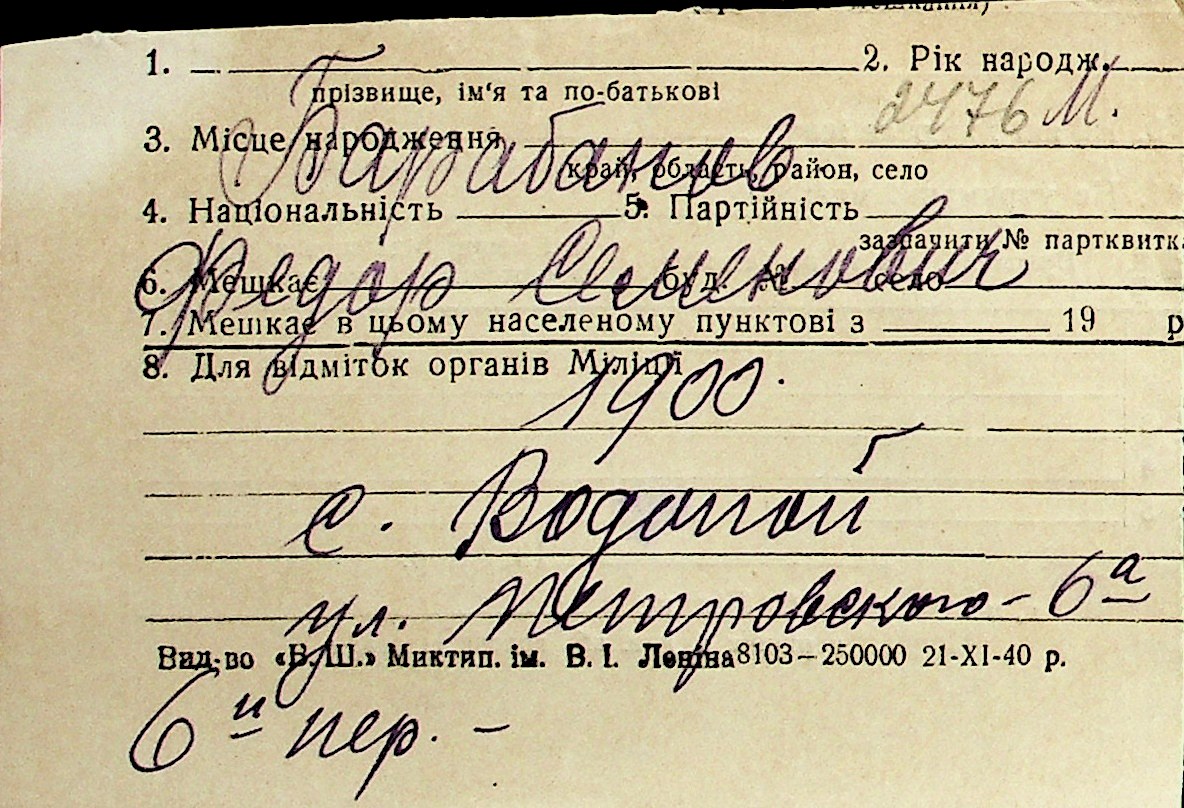 мешкання)
1. 2. Рік народж.
прізвище, ім'я та по-батькові
2476 М.
3. Місце народження
Барабанов
край, область, район, село
4. Національність 5. Партійність
зазначити № партквитка
Федор Семенович
6. Мешкає буд. № село
7. Мешкає в цьому населеному пунктові з 19 р
8. Для відміток органів Міліції
1900.
с. Водопой
ул. Петровского - 6а
Вид-во «В.Ш.» Миктип. ім. В. І. Леніна 8103—250000 21-XI-40 р.
6й пер. -